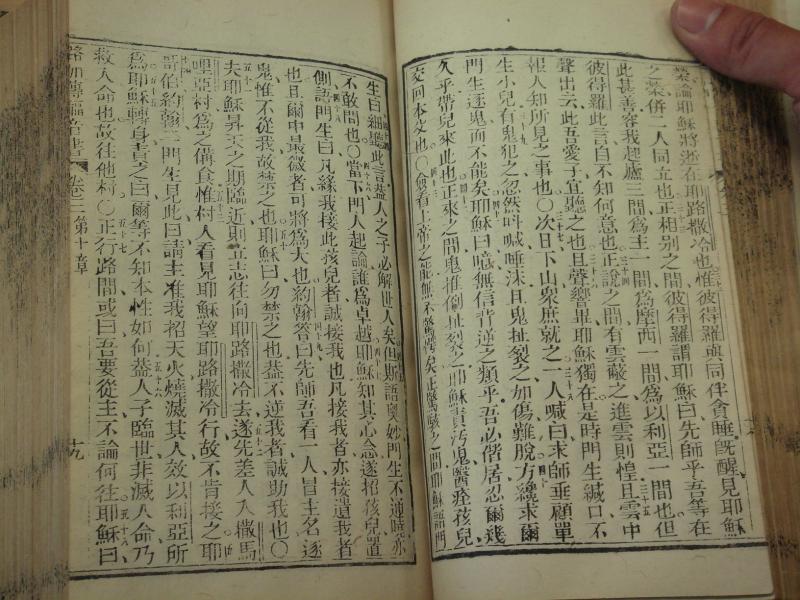 榮論耶穌將逝在耶路撒冷也惟彼得羅與同伴貪睡既醒見耶穌
之榮併二人同立也正相別之間彼得羅謂耶穌曰先師乎吾等在
此甚善容我起廬三間爲主一間爲摩西一間爲以利亞一間也但
彼得羅此言自不知何意也正說之間有雲蔽之進雲則惶且雲中
聲出云此吾愛子宜聽之也且聲響畢耶穌獨在是時門生緘口不
報人知所見之事也〇次日下山衆庶就之一人喊曰求師垂顧單
生小兒有鬼犯之忽然叫喊唾沫且鬼扯裂之如傷難脫方纔求爾
門生逐鬼而不能矣耶穌曰噫無信背逆之類乎吾必偕居忍爾幾
久乎帶兒來此也正來之間鬼推倒扯裂之耶穌責污鬼醫痊孩兒
交回本父也〇僉看上帝之能無不驚駭矣正驚駭之間耶穌語門
生曰細聽此言蓋人之子必解世人矣但斯語奧妙門生不達曉亦
不敢問也〇當下門人起論誰爲卓越耶穌知其心念遂招孩兒置
側語門生曰凡緣我接此孩兒者誠接我也凡接我者亦接遣我者
也且爾中最微者可將爲大也約翰答曰先師吾看一人冒主名逐
鬼惟不從我故禁之也耶穌曰勿禁之也蓋不逆我者誠助我也〇
夫耶穌昇天之期臨近則立志往向耶路撒冷去遂先差人入撒馬
哩亞村爲之備食惟村人看見耶穌望耶路撒冷行故不肯接之耶
哥伯約翰二門生見此曰請主准我招天火燒滅其人效以利亞所
爲耶穌轉身責之曰爾等不知本性如何蓋人子臨世非滅人命乃
救人命也故往他村〇正行路間或曰吾要從主不論何往耶穌曰
路加傳福音書 卷三 第十章 十九